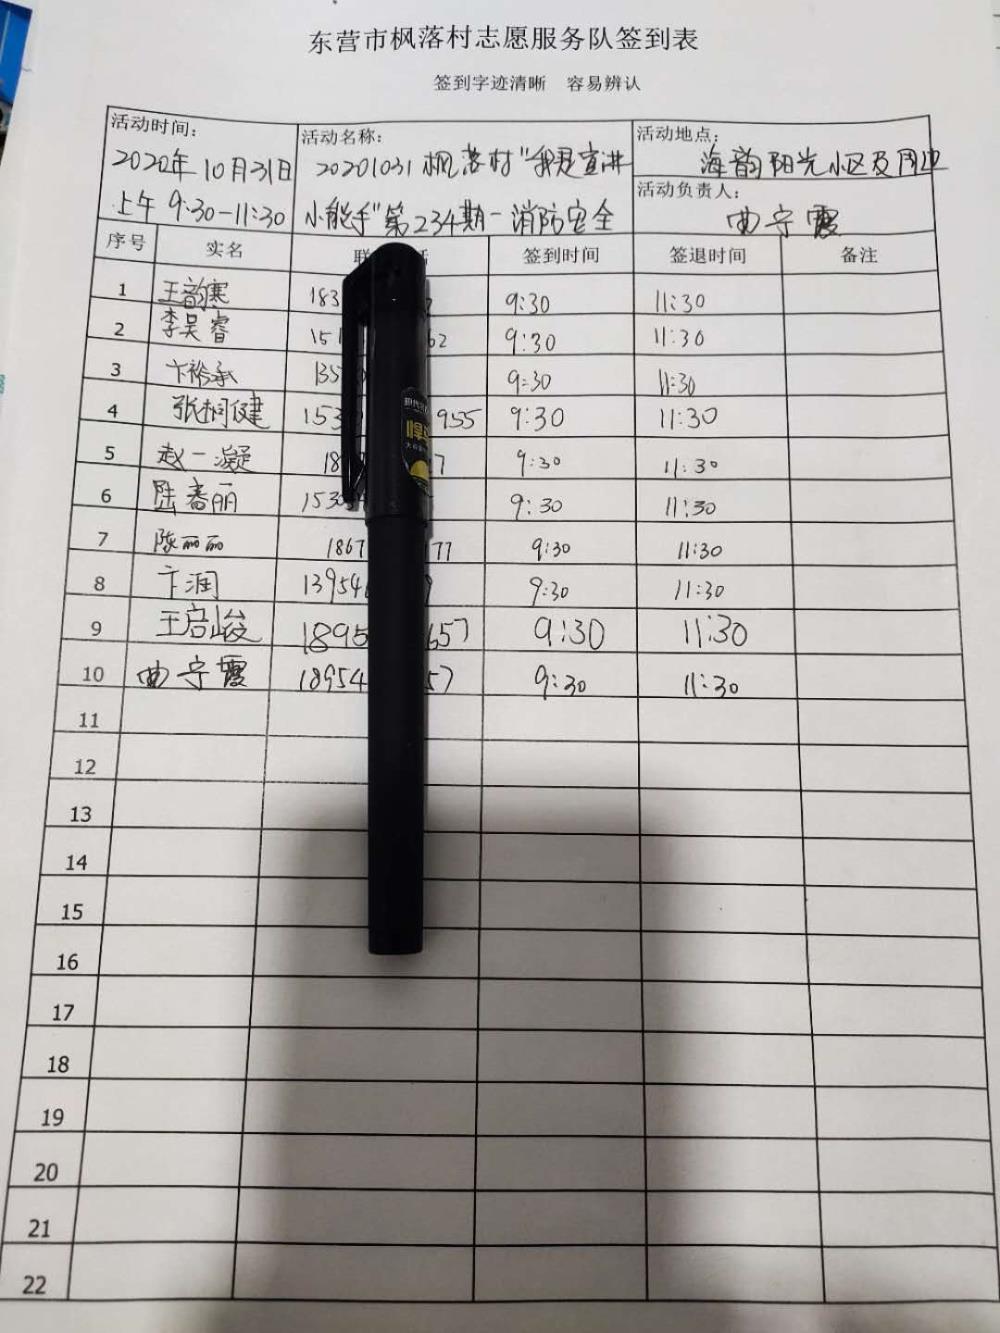 东营市枫落村志愿服务队签到表
签到字迹清晰 容易辨认
活动时间: 活动名称: 活动地点:
2020年10月31日 20201031枫落村"我是宣讲 海韵阳光小区及周边
活动负责人:
上午 9:30-11:30 小能手"第234期-消防安全 曲守霞
序号 实名 联 签到时间 签退时间 备注
1 王韵寒 183 9:30 11:30
2 李昊睿 151 62 9:30 11:30
3 卞裕承 135 9:30 11:30
4 张栩健 153 955 9:30 11:30
5 赵一凝 18 7 9:30 11:30
6 陆春丽 1530 9:30 11:30
7 陈丽丽 1867 177 9:30 11:30
8 卞润 13954 9 9:30 11:30
9 王启峻 1895 657 9:30 11:30
10 曲守霞 18954 57 9:30 11:30
11
12
13
14
15
16
17
18
19
20
21
22